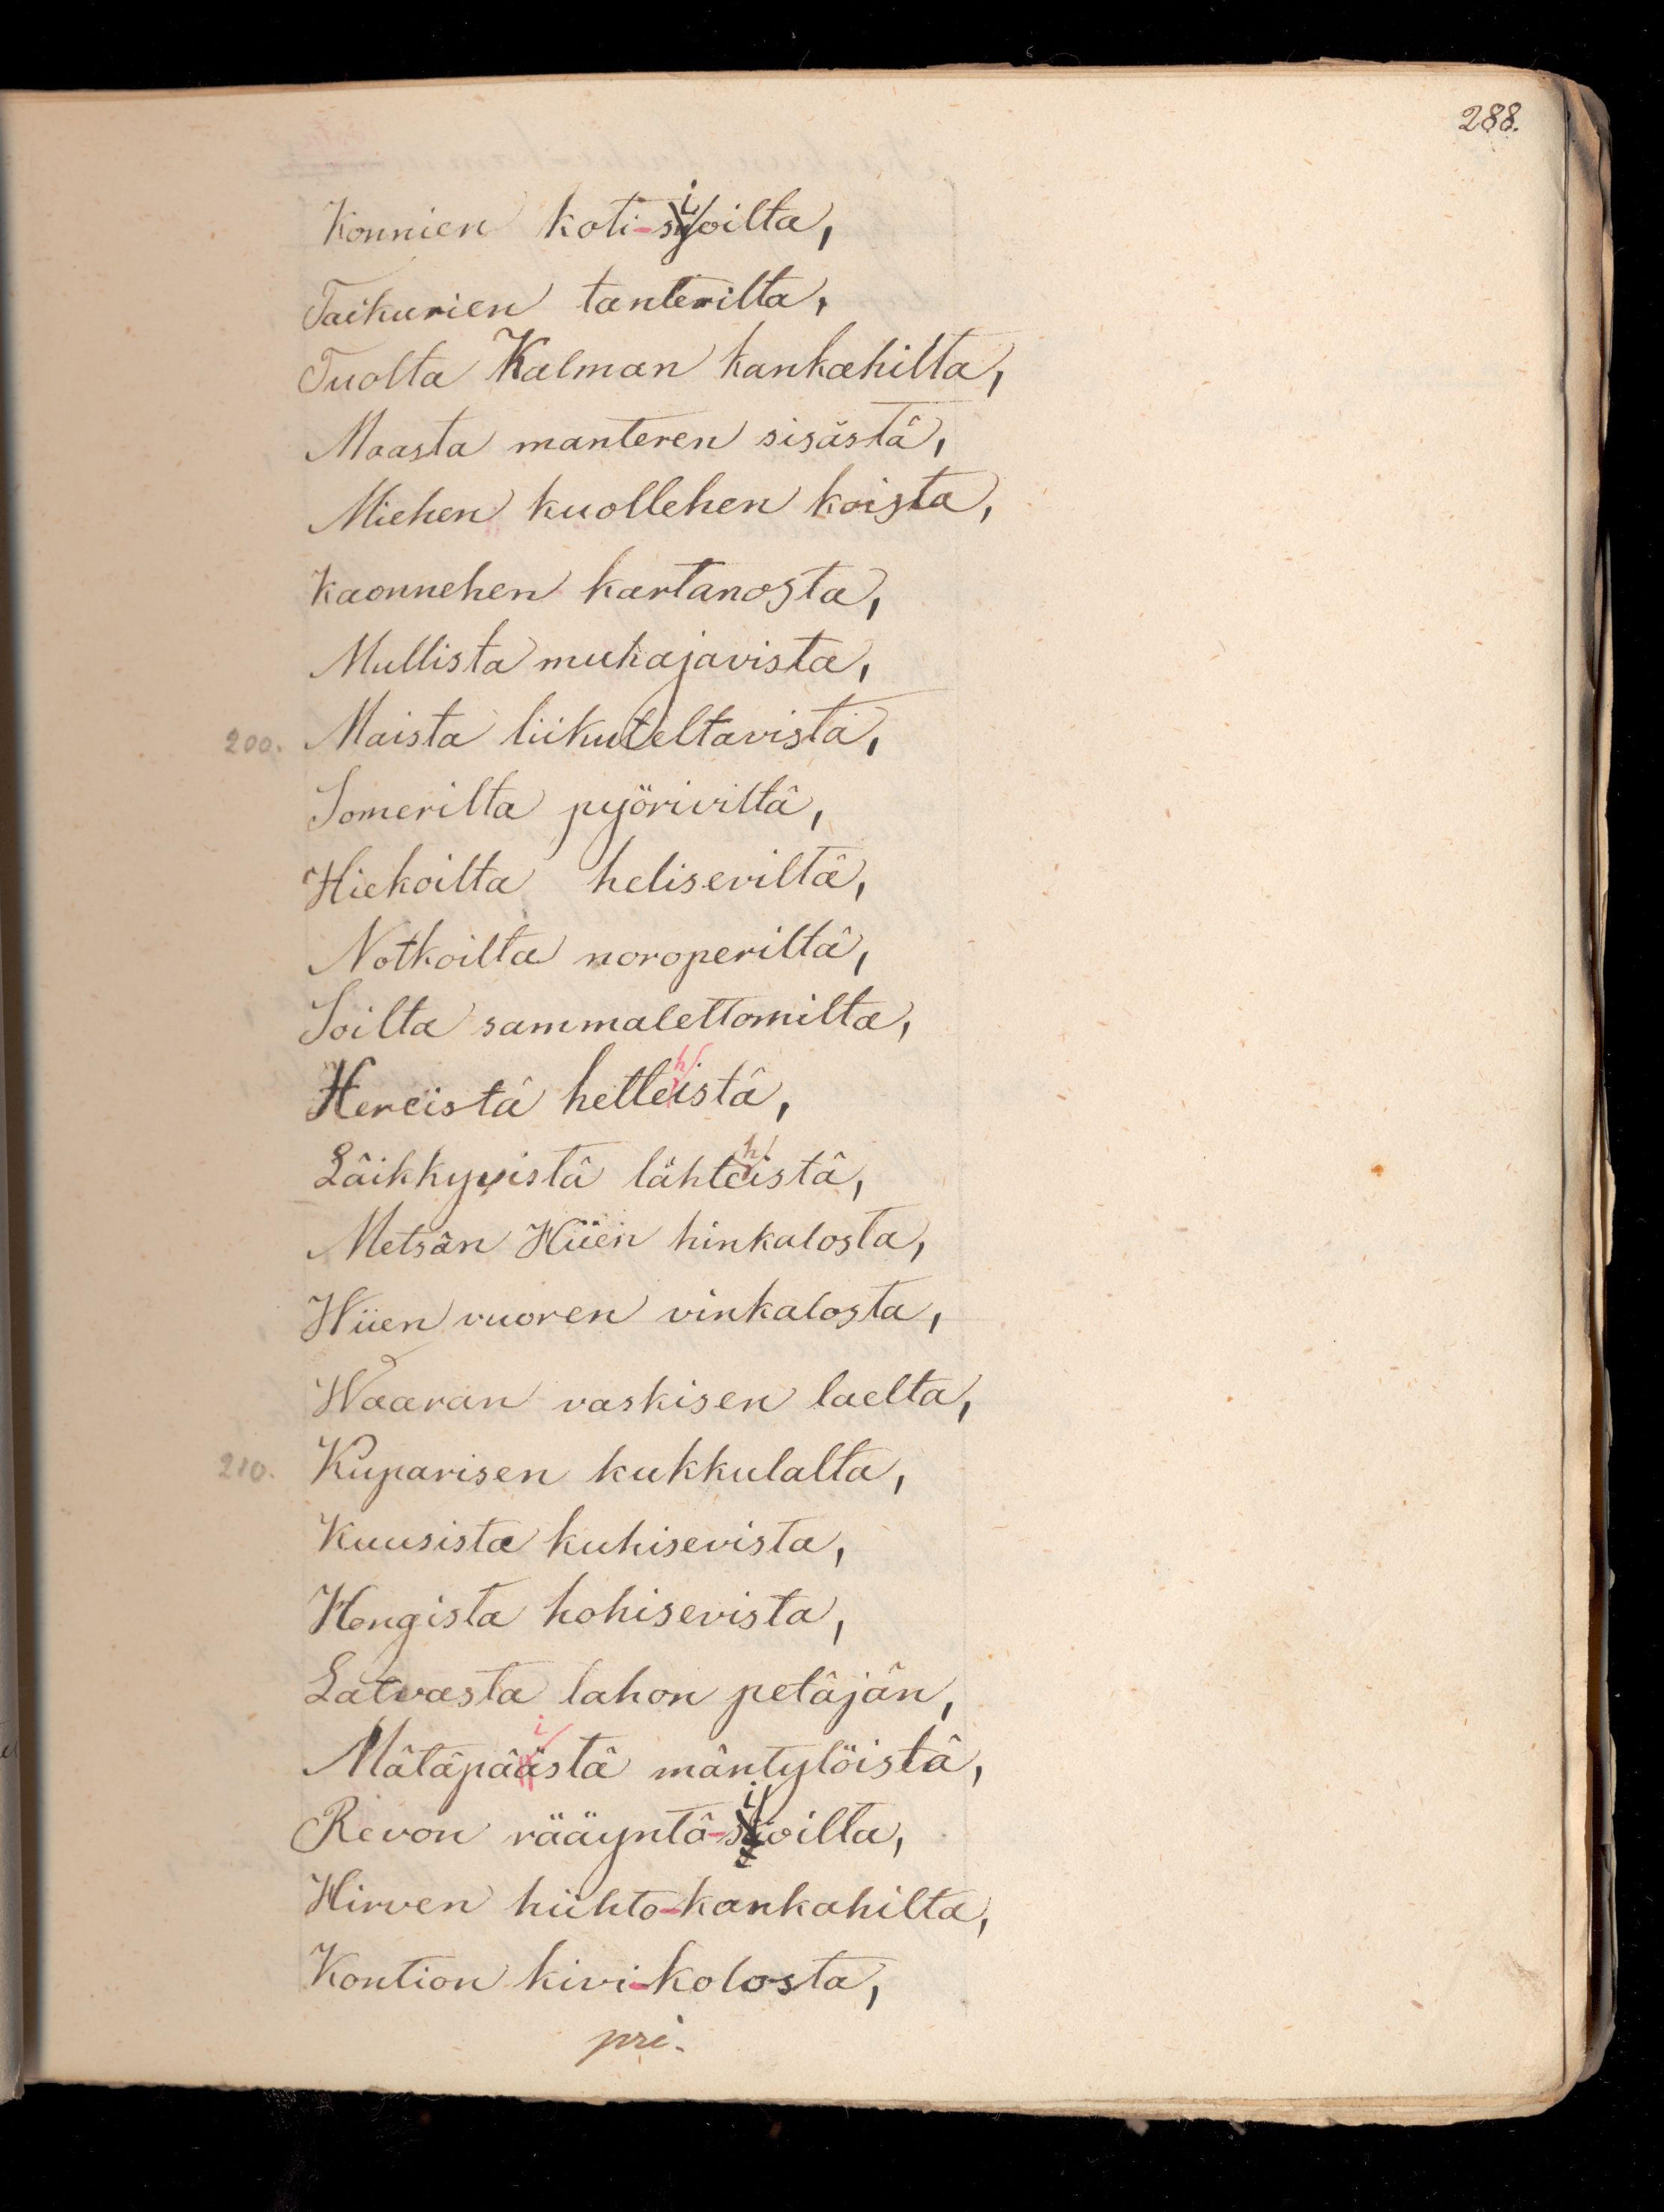 288.
Konnien koti-sijoilta,
Taikurien tanterilta,
Tuolta Kalman kankahilta,
Maasta manteren sisästä,
Miehen kuollehen koista,
Kaonnehen kartanosta,
Mullista muhajavista,
200. Maista liikuteltavista,
Somerilta pyöriviltä,
Hiekoilta heliseviltä,
Notkoilta noroperiltä,
Soilta sammalettomilta,
Hereistä hettehistä,
Läikkyvistä lähtehistä,
Metsän Hiien hinkalosta,
Hiien vuoren vinkalosta,
Waaran vaskisen laelta,
210. Kuparisen kukkulalta,
Kuusista kuhisevista,
Hongista hohisevista,
Latvasta lahon petäjän,
Mätäpäistä mäntylöistä,
Revon rääyntä-sijoilta,
Hirven hiihto-kankahilta,
Kontion kivi-kolosta,
pri.